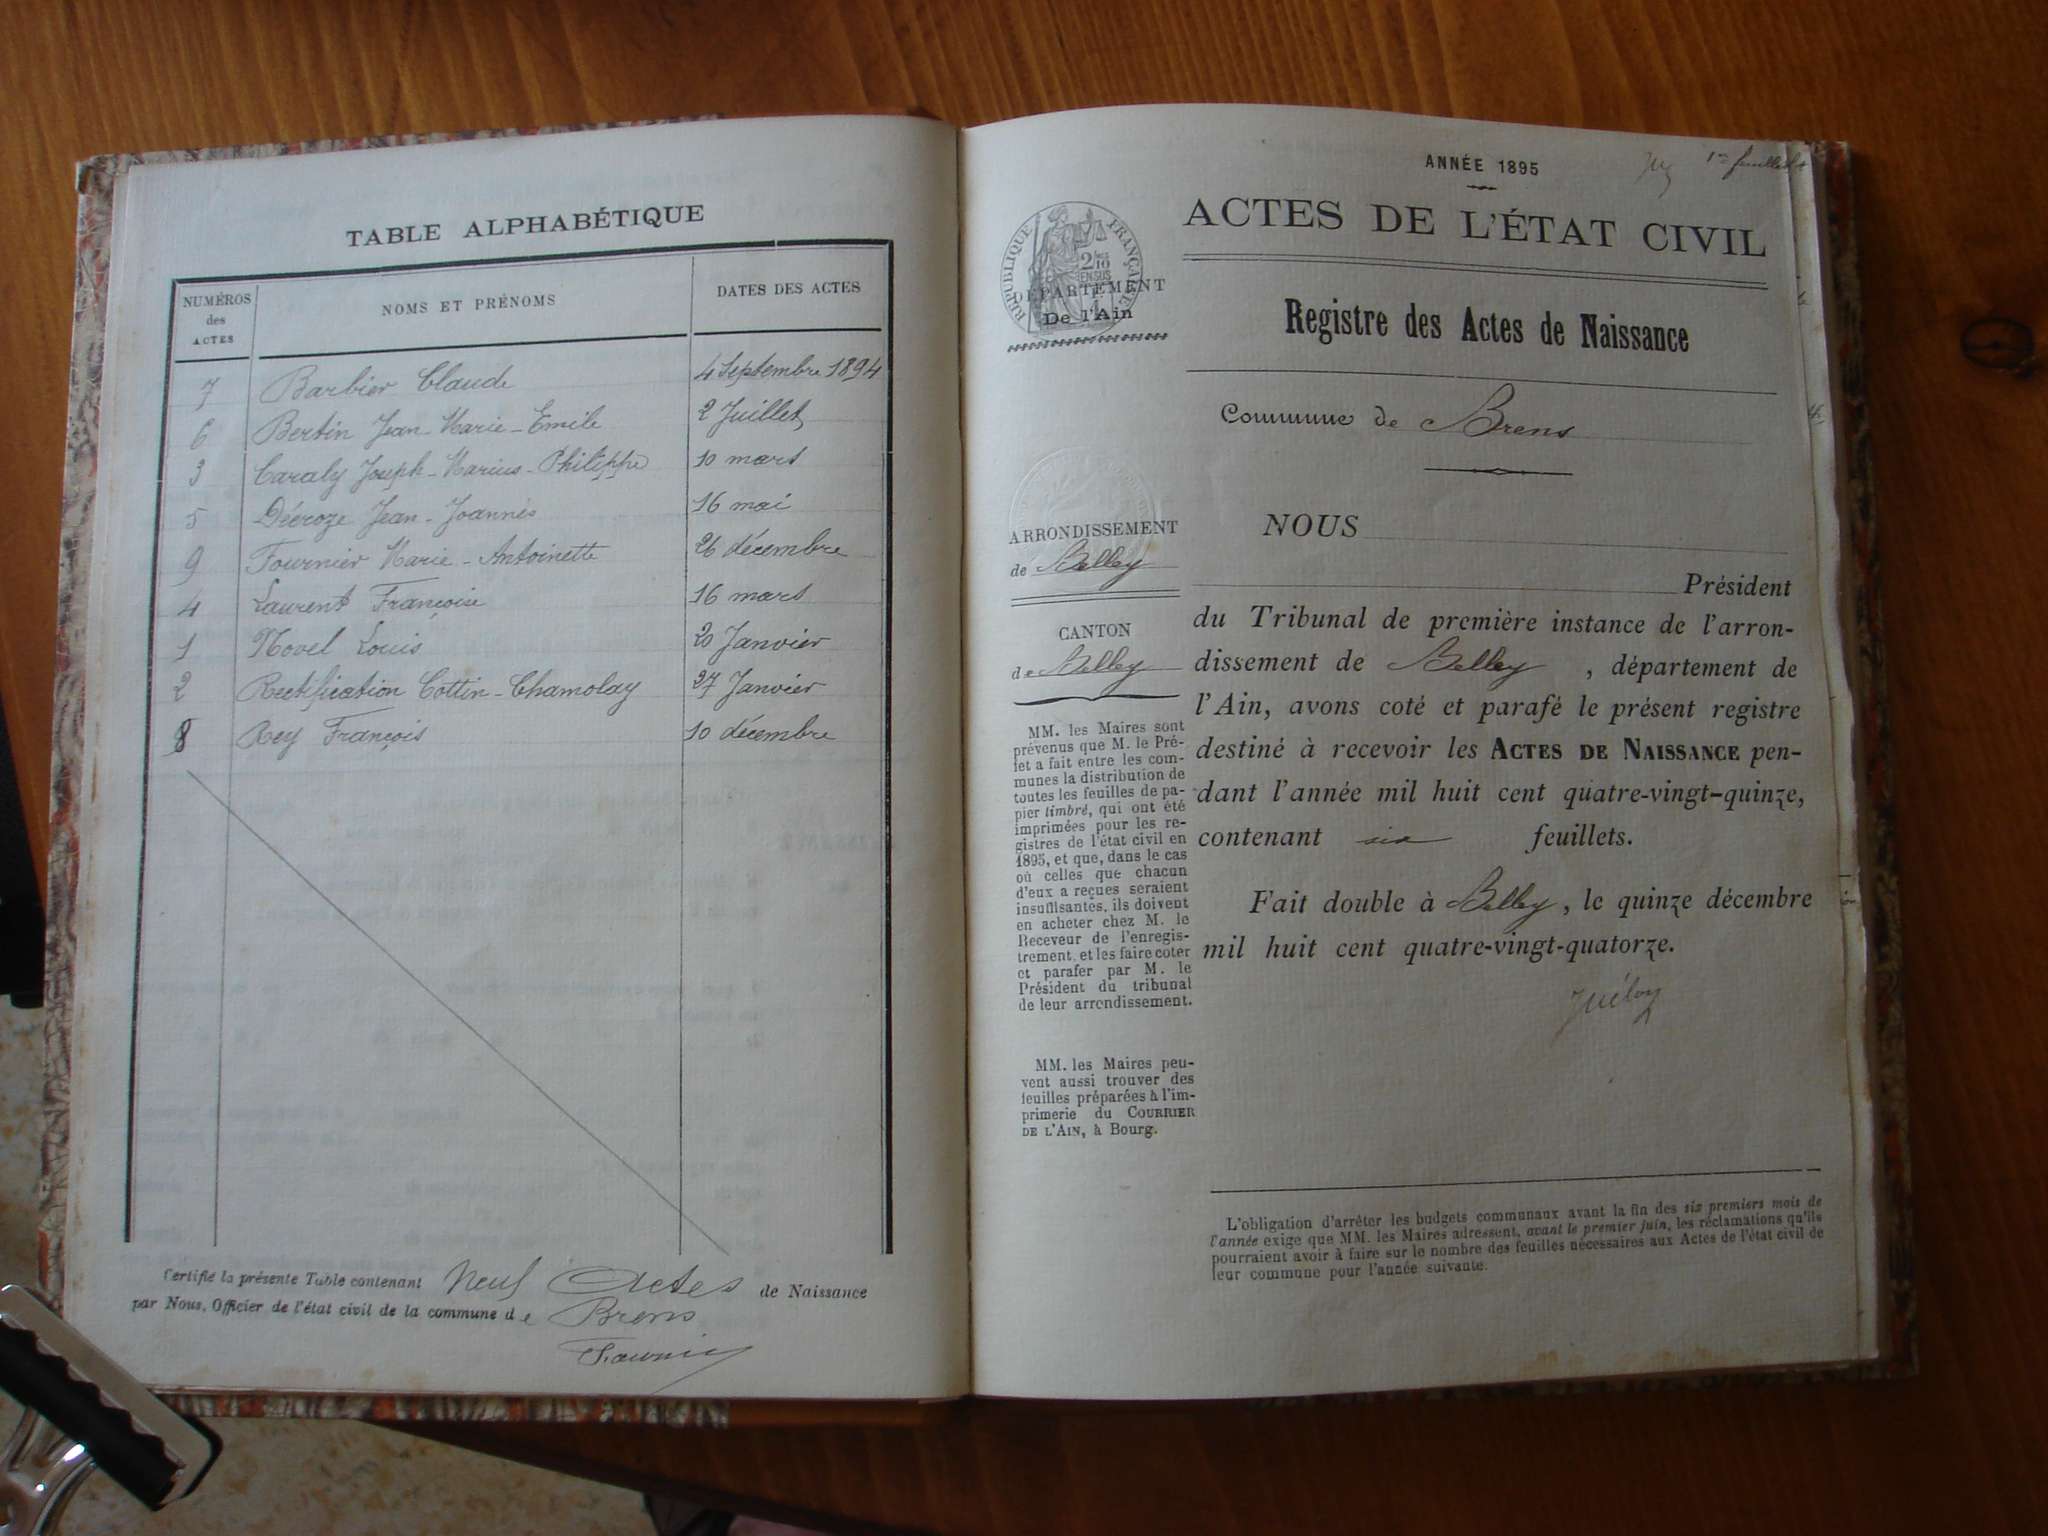 TABLE ALPHABÉTIQUE
NUMÉROS des ACTES NOMS ET PRÉNOMS DATES DES ACTES
7 Barbier Claude 4 Septembre 1894
6 Bertin Jean-Marie-Emile 2 Juillet
3 Caraly Joseph-Marius-Philippe 10 mars
5 Décroze Jean-Joannès 16 mai
9 Fournier Marie-Antoinette 26 décembre
4 Laurent Françoise 16 mars
1 Novel Louis 20 Janvier
2 Rectification Cottin-Chamolay 27 Janvier
8 Rey François 10 décembre
Certifié la présente Table contenant Neuf Actes de Naissance
par Nous, Officier de l'état civil de la commune de Brens
ANNÉE 1895
1er feuillet
ACTES DE L'ÉTAT CIVIL
RÉPUBLIQUE FRANÇAISE
2/10 EN SUS
DÉPARTEMENT
De l'Ain
Registre des Actes de Naissance
Commune de Brens
ARRONDISSEMENT
de Belley
CANTON
de Belley
MM. les Maires sont
prévenus que M. le Pré-
fet a fait entre les com-
munes la distribution de
toutes les feuilles de pa-
pier timbré, qui ont été
imprimées pour les re-
gistres de l'état civil en
1895, et que, dans le cas
où celles que chacun
d'eux a reçues seraient
insuffisantes, ils doivent
en acheter chez M. le
Receveur de l'enregis-
trement, et les faire coter
et parafer par M. le
Président du tribunal
de leur arrondissement.
MM. les Maires peu-
vent aussi trouver des
feuilles préparées à l'im-
primerie du COURRIER
DE L'AIN, à Bourg.
NOUS
Président
du Tribunal de première instance de l'arron-
dissement de Belley, département de
l'Ain, avons coté et parafé le présent registre
destiné à recevoir les ACTES DE NAISSANCE pen-
dant l'année mil huit cent quatre-vingt-quinze,
contenant six feuillets.
Fait double à Belley, le quinze décembre
mil huit cent quatre-vingt-quatorze.
L'obligation d'arrêter les budgets communaux avant la fin des six premiers mois de
l'année exige que MM. les Maires adressent, avant le premier juin, les réclamations qu'ils
pourraient avoir à faire sur le nombre des feuilles nécessaires aux Actes de l'état civil de
leur commune pour l'année suivante.